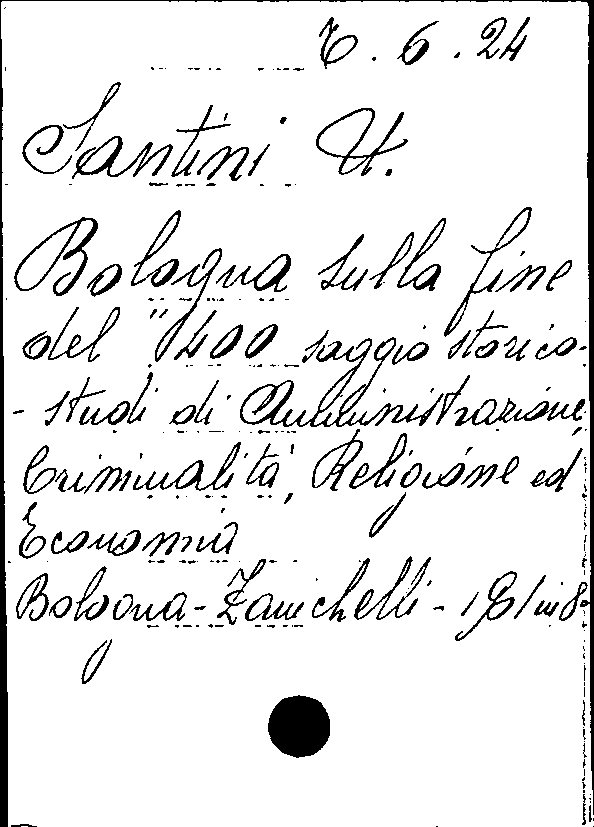 C. 6. 24
Santini U.
Bologna sulla fine
del "400 saggio storico-
- studi di Amministrazione,
Criminalità, Religione ed
Economia
Bologna - Zanichelli - 1901 in 8°